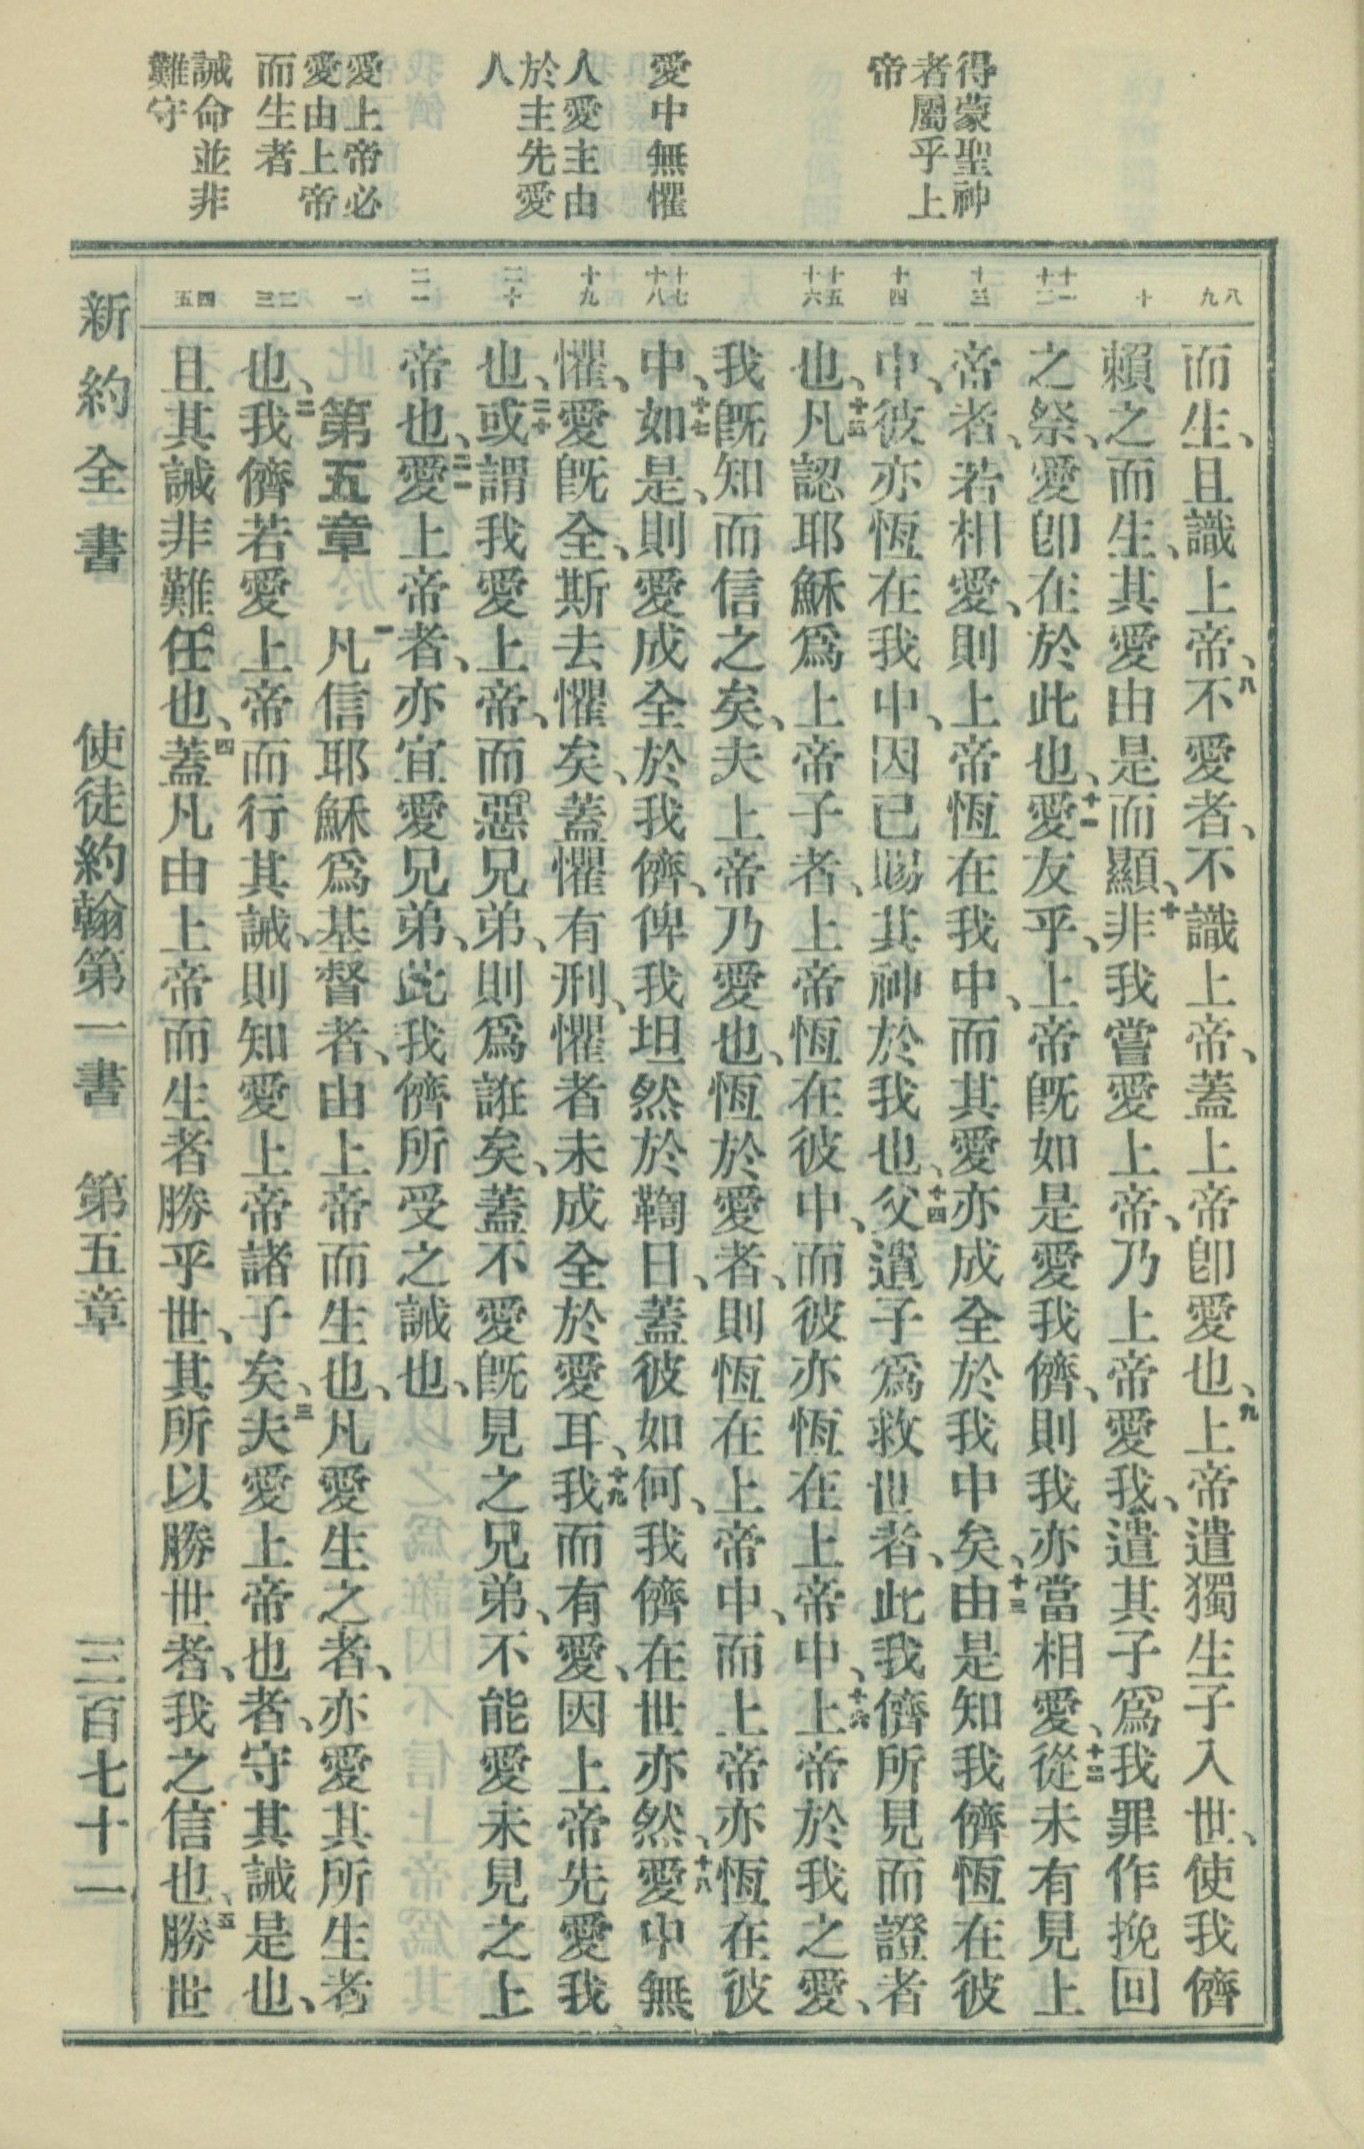 得蒙聖神
者屬乎上
帝
愛中無懼
人愛主由
於主先愛
人
愛上帝必
愛由上帝
而生者
誡命並非
難守
八
九
十
十一
十二
十三
十四
十五
十六
十七
十八
十九
二十
二一
一
二
三
四
五
而生、且識上帝、八不愛者、不識上帝、蓋上帝卽愛也、九上帝遣獨生子入世、使我儕
賴之而生、其愛由是而顯、十非我嘗愛上帝、乃上帝愛我、遣其子爲我罪作挽回
之祭、愛卽在於此也、十一愛友乎、上帝旣如是愛我儕、則我亦當相愛、十二從未有見上
帝者、若相愛、則上帝恆在我中、而其愛亦成全於我中矣、十三由是知我儕恆在彼
中、彼亦恆在我中、因已賜其神於我也、十四父遣子爲救世者、此我儕所見而證者
也、十五凡認耶穌爲上帝子者、上帝恆在彼中、而彼亦恆在上帝中、十六上帝於我之愛、
我旣知而信之矣、夫上帝乃愛也、恆於愛者、則恆在上帝中、而上帝亦恆在彼
中、十七如是、則愛成全於我儕、俾我坦然於鞫日、蓋彼如何、我儕在世亦然、十八愛中無
懼、愛旣全、斯去懼矣、蓋懼有刑、懼者未成全於愛耳、十九我而有愛、因上帝先愛我
也、二十或謂我愛上帝、而惡兄弟、則爲誑矣、蓋不愛旣見之兄弟、不能愛未見之上
帝也、二一愛上帝者、亦宜愛兄弟、此我儕所受之誡也、
第五章 一凡信耶穌爲基督者、由上帝而生也、凡愛生之者、亦愛其所生者
也、二我儕若愛上帝而行其誡、則知愛上帝諸子矣、三夫愛上帝也者、守其誡是也、
且其誡非難任也、四蓋凡由上帝而生者勝乎世、其所以勝世者、我之信也、五勝世
新約全書 使徒約翰第一書 第五章 三百七十一